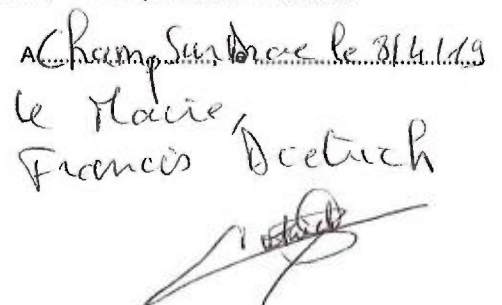 A Champ Sur Drac le 3/4/19
le Maire,
Francis Dietrich